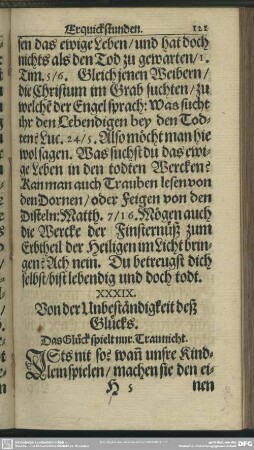 Erquickstunden. 121
sen das ewige Leben / und hat doch
nichts als den Tod zu gewarten / 1.
Tim. 5/6. Gleich jenen Weibern /
die Christum im Grab suchten / zu
welchẽ der Engel sprach: Was sucht
ihr den Lebendigen bey den Tod-
ten? Luc. 24/5. Also möcht man hie
wol sagen. Was suchst du das ewi-
ge Leben in den todten Wercken?
Kan man auch Trauben lesen von
den Dornen / oder Feigen von den
Disteln: Matth. 7/16. Mögen auch
die Wercke der Finsternüß zum
Erbtheil der Heiligen im Licht brin-
gen? Ach nein. Du betreugst dich
selbst / bist lebendig und doch todt.
XXXIX.
Von der Unbeständigkeit deß
Glücks.
Das Glück spielt nur. Trau nicht.
ISts nit so? wañ unsre Kind-
lein spielen / machen sie den ei-
H 5 nen